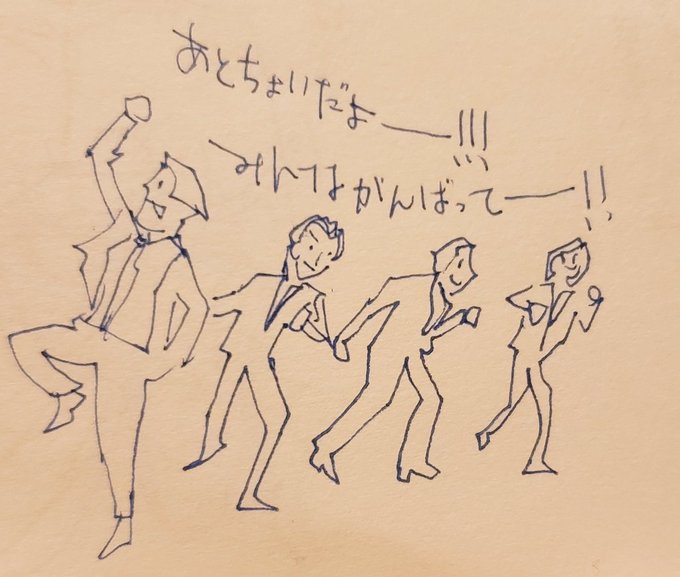 あとちょいだよー!!!
みんながんばってー!!